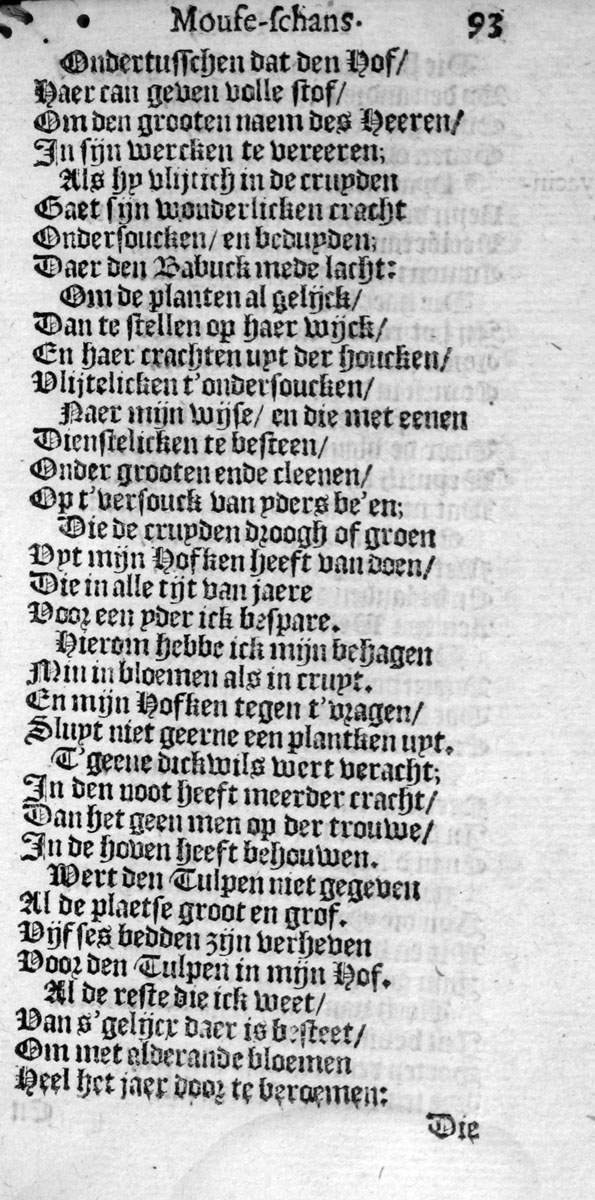 Mouse-schans. 93
Ondertusschen dat den Hof/
Haer can geven volle stof/
Om den grooten naem des Heeren/
In sijn wercken te vereeren;
Als hy vlijtich in de cruyden
Gaet sijn wonderlicken cracht
Ondersoucken/ en beduyden;
Daer den Babuck mede lacht:
Om de planten al gelijck/
Dan te stellen op haer wijck/
En haer crachten uyt der houcken/
Vlijtelicken t'ondersoucken/
Naer mijn wijse/ en die met eenen
Dienstelicken te besteen/
Onder grooten ende cleenen/
Op t'versouck van yders be'en;
Die de cruyden droogh of groen
Uyt mijn Hofken heeft van doen/
Die in alle tijt van jaere
Voor een yder ick bespare.
Hierom hebbe ick mijn behagen
Min in bloemen als in cruyt.
En mijn Hofken tegen t'vragen/
Sluyt niet geerne een plantken uyt.
T'geene dickwils wert veracht;
In den noot heeft meerder cracht/
Dan het geen men op der trouwe/
In de hoven heeft behouwen.
Wert den Tulpen niet gegeven
Al de plaetse groot en grof.
Vijf ses bedden zijn verheven
Voor den Tulpen in mijn Hof.
Al de reste die ick weet/
Van s'gelijcx daer is besteet/
Om met alderande bloemen
Heel het jaer door te beroemen:
Die